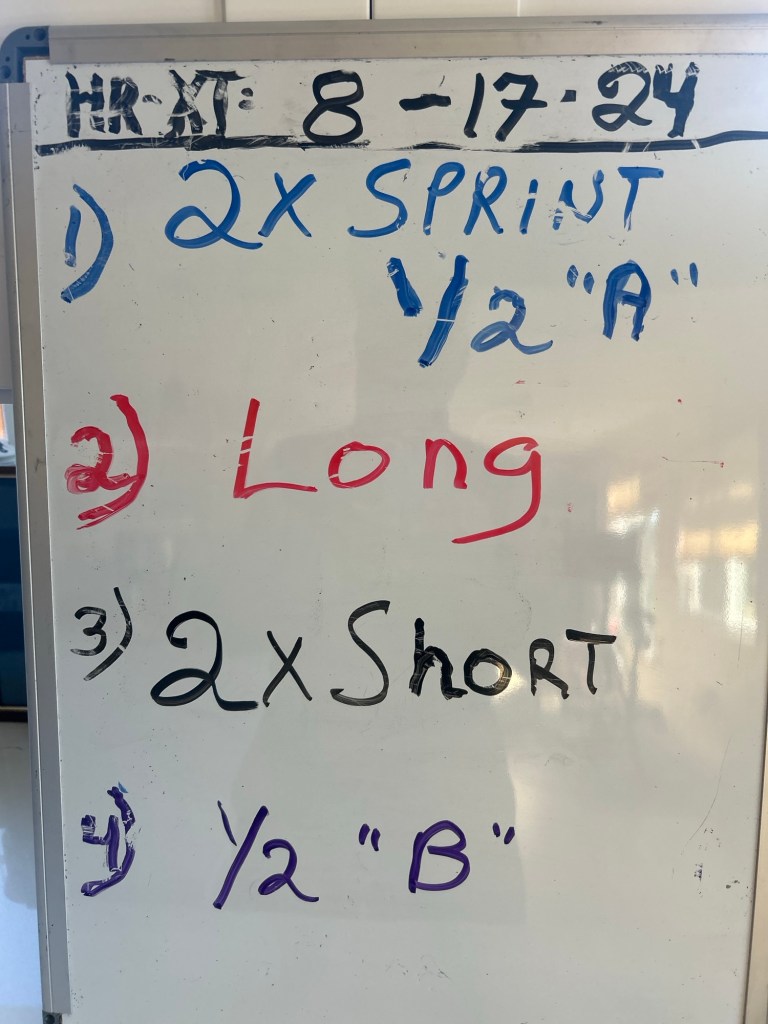 HR-XT: 8-17-24
1) 2X SPRiNT
1/2 "A"
2) Long
3) 2x ShoRT
4) 1/2 "B"